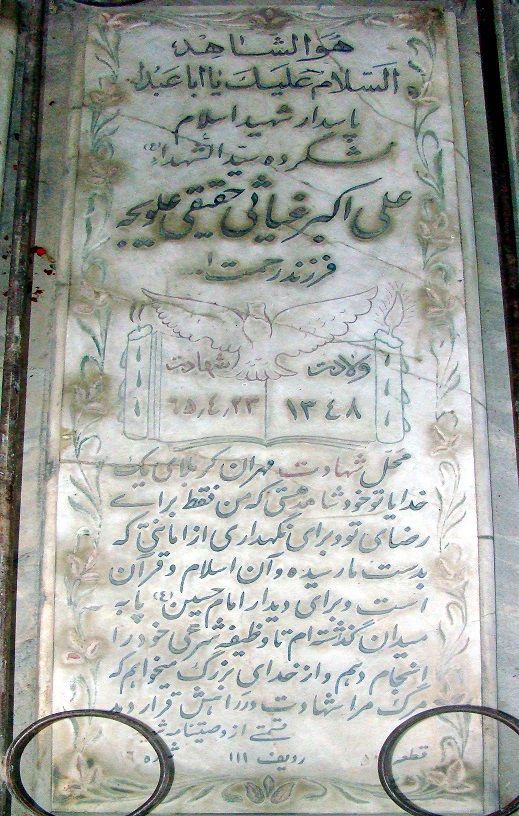 هوالشاهد
السلام علیک یا اباعبدالله
پاسدار شهید اسلام
لشکر ده سید الشهداء (ع)
علی اکبر غیاثی حقیقی علویجه
فرزند رحمت ا...
ولادت شهادت
۱۳۴۸ ۶۵٫۴٫۲۳
محل شهادت مهران کربلای یک
خدایا تو خود شاهد هستی که من فقط برای
رضای تو و برای نگهداری از امانتی که
بدست ما رسیده و آن اسلام و قرآن
است و برای دیدار امام حسین (ع) پا به
میدان گذشته ام تا وظیفه شرعی خود را
انجام دهم و از خدای بزرگ میخواهم که
مرگ مرا شهادت در راهش قرار دهد
قسمتی از وصیتنامه شهید
قطعه ردیف ۱۱۱ شماره ۶